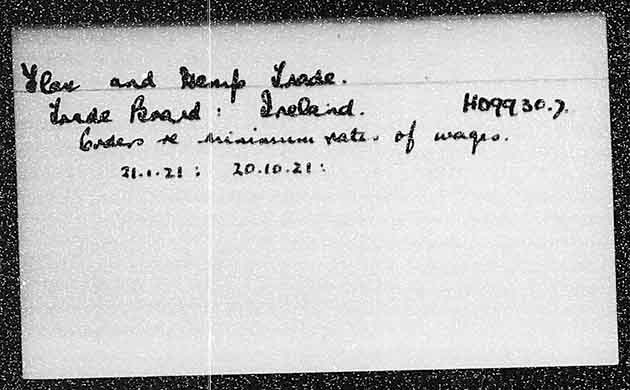 Flax and Hemp Trade.
Trade Board : Ireland. HD9930.7.
Orders re minimum rates of wages.
21.1.21 : 20.10.21 :